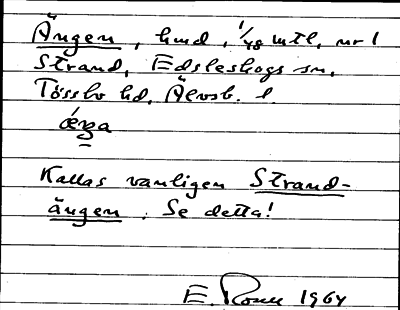 Ängen, hmd, 1/48 mtl, nr 1
Strand, Edsleskogs sn,
Tössbo hd, Älvsb. l.
Kallas vanligen Strand-
ängen. Se detta!
E. Rosell 1964